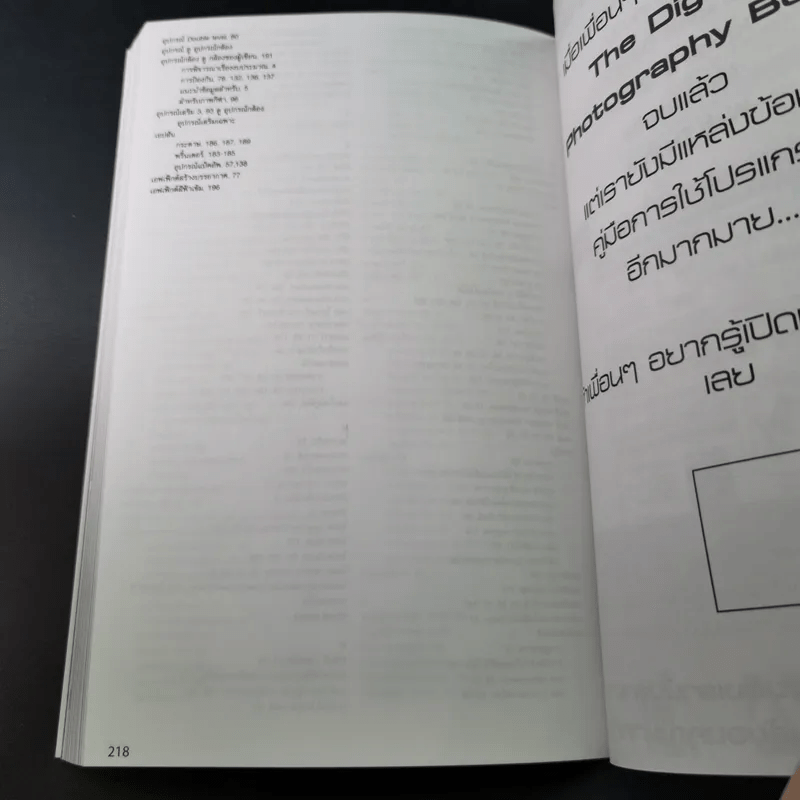 อุปกรณ์ 80
อุปกรณ์ ดู อุปกรณ์กล้อง
อุปกรณ์กล้อง ดู กล้องของผู้เขียน, 191
การพิจารณาเรื่องงบประมาณ, 4
การป้องกัน 79, 132, 136, 137
แนะนำข้อมูลสำหรับ, 5
สำหรับภาพกีฬา, 98
อุปกรณ์เสริม 3, 93 ดู อุปกรณ์กล้อง
อุปกรณ์เสริมเฉพาะ
เอปสัน
กระดาษ 186, 187, 189
พรินเตอร์, 183-185
อุปกรณ์แบ็คอัพ 57,138
เอฟเฟ็กต์สร้างบรรยากาศ, 77
เอฟเฟ็กต์สีฟ้าเข้ม, 196
218
เมื่อเพื่อนๆ
The Dig
Photography Bo
จบแล้ว
แต่เรายังมีแหล่งข้อ
คู่มือการใช้โปรแกร
อีกมากมาย...
เพื่อนๆ อยากรู้เปิด
เลย